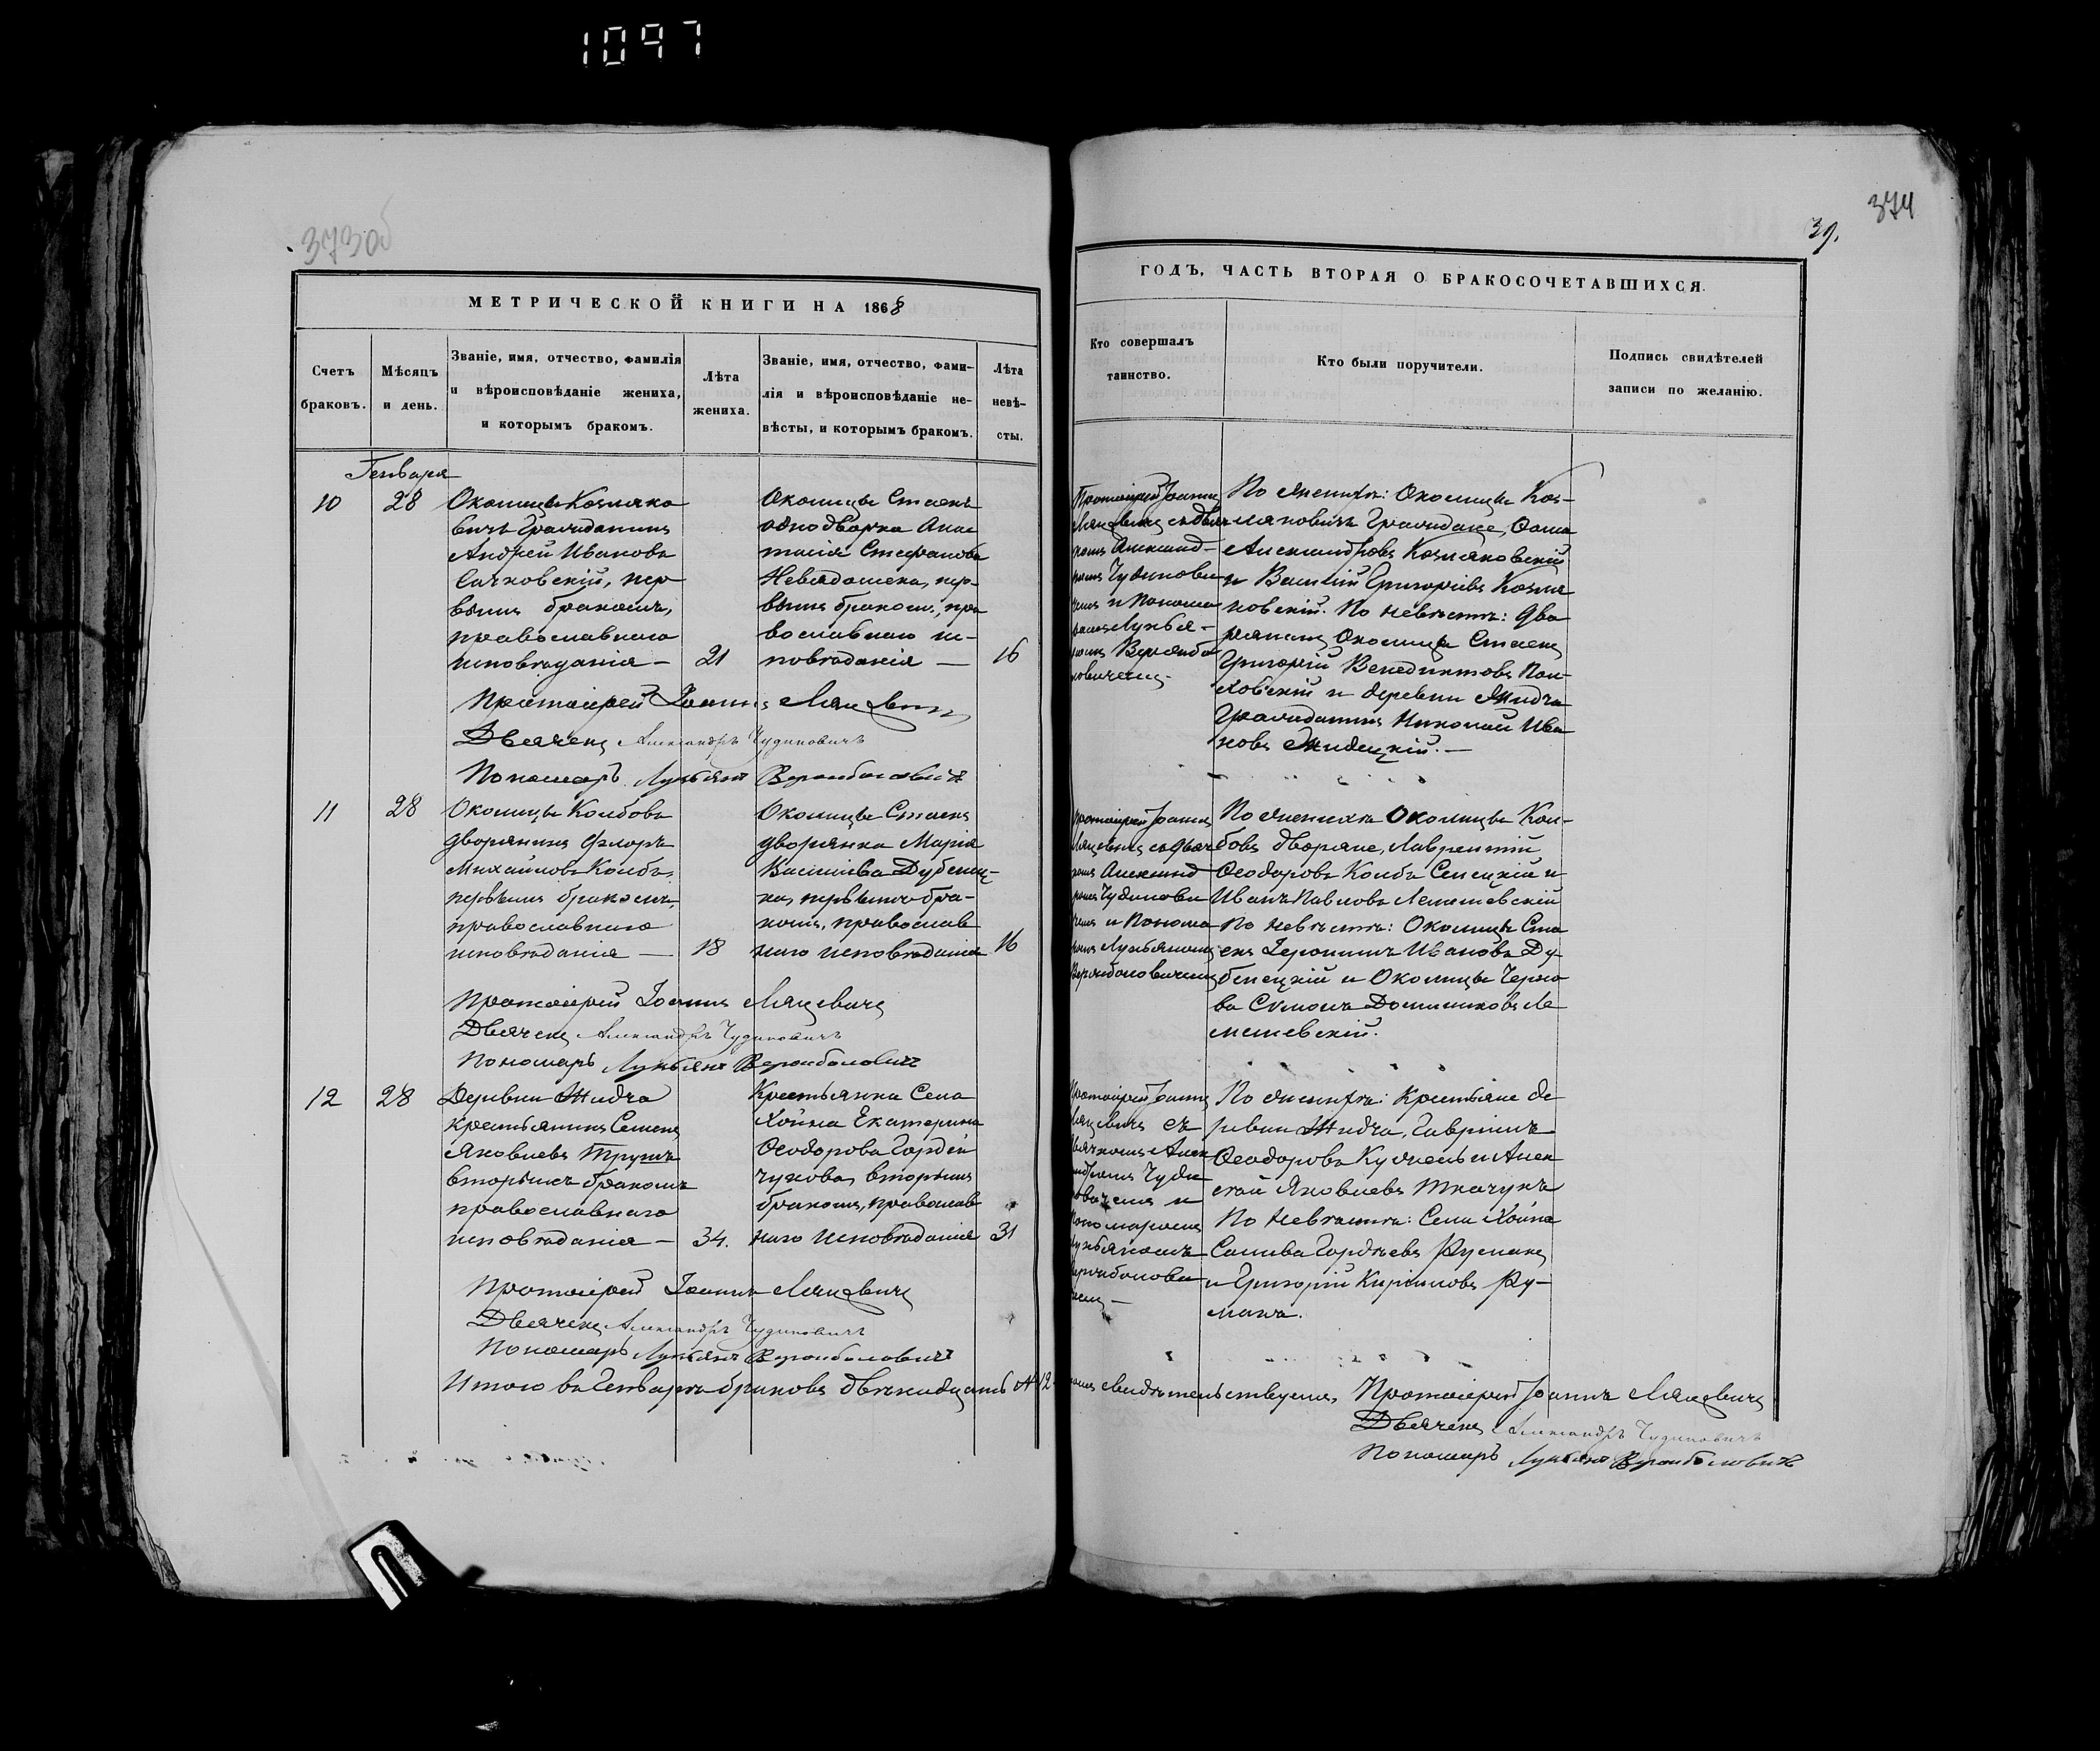 1097
373об
374
39.
МЕТРИЧЕСКОЙ КНИГИ НА 1868
ГОДЪ, ЧАСТЬ ВТОРАЯ О БРАКОСОЧЕТАВШИХСЯ.
Счетъ
браковъ.
Мѣсяцъ
и день.
Званіе, имя, отчество, фамилія
и вѣроисповѣданіе жениха,
и которымъ бракомъ.
Лѣта
жениха.
Званіе, имя, отчество, фами-
лія и вѣроисповѣданіе не-
вѣсты, и которымъ бракомъ.
Лѣта
невѣ-
сты.
Кто совершалъ
таинство.
Кто были поручители.
Подпись свидѣтелей
записи по желанію.
Генваря
10
28
Околицы Козляко
вичъ Гражданинъ
Андрей Ивановъ
Сачковскій, пер
вымъ бракомъ,
православнаго
исповѣданія —
21
Околицы Стаекъ
однодворка Анас
тасія Стефанова
пер-
вымъ бракомъ, пра
вославнаго ис-
повѣданія —
16
Протоіерей Іоаннъ
Лящевичъ съ Дья
комъ Александ-
ромъ Чудинови
чемъ и Понома
ремъ Лукья-
номъ
По женихѣ: Околицы Коз-
ляковичъ Граждане, Ѳома
Александровъ Козляковскій
и Василій Григоріевъ Козля
ковскій. По невѣстѣ: Дво
рянинъ Околицы Стаекъ
Григорій Венедиктовъ
и деревни Жидча
Гражданинъ Николай Ива
новъ Жидецкій. —
Протоіерей Іоаннъ Лящевичъ
Дьячекъ Александръ Чудиновичъ
Пономарь Лукьянъ
11
28
Околицы Колбовъ
дворянинъ Флоръ
Михайловъ Колба,
первымъ бракомъ,
православнаго
исповѣданія —
18
Околицы Стаекъ
дворянка Марія
Васильева Дубенец-
ка, первымъ бра-
комъ, православ
наго исповѣданія
16
Протоіерей Іоаннъ
Лящевичъ съ Дьяч
комъ Александ
ромъ Чудинови
чемъ и Понома
ремъ Лукьяномъ
По женихѣ Околицы Кол-
бовъ дворяне, Лаврентій
Ѳеодоровъ Колба Сенецкій и
Иванъ Павловъ Лемешевскій
По невѣстѣ: Околицы Ста
екъ Іеронимъ Ивановъ Ду-
бенецкій и Околицы Черно
ва Симонъ Доминиковъ Ле
мешевскій.
Протоіерей Іоаннъ Лящевичъ
Дьячекъ Александръ Чудиновичъ
Пономарь Лукьянъ
12
28
Деревни Жидча
крестьянинъ Семенъ
Яковлевъ Трушъ
вторымъ бракомъ
православнаго
исповѣданія —
34.
Крестьянка Села
Хойна Екатерина
Ѳеодорова Гордей
чукова, вторымъ
бракомъ, православ
наго исповѣданія
31
Протоіерей Іоаннъ
Лящевичъ съ
Дьячкомъ Алек
сандромъ Чуди
новичемъ и
Пономаремъ
Лукьяномъ
По женихѣ: Крестьяне де
ревни Жидча, Гавріилъ
Ѳеодоровъ и Алек
сѣй Яковлевъ Ткачукъ
По невѣстѣ: Села Хойна
Савва Гордѣевъ Руманъ
и Григорій Кирилловъ Ру-
манъ.
Протоіерей Іоаннъ Лящевичъ
Дьячекъ Александръ Чудиновичъ
Пономарь Лукьянъ
Итого въ Генварѣ браковъ двѣнадцать № 12
свидѣтельствуемъ, Протоіерей Іоаннъ Лящевичъ
Дьячекъ Александръ Чудиновичъ
Пономарь Лукьянъ